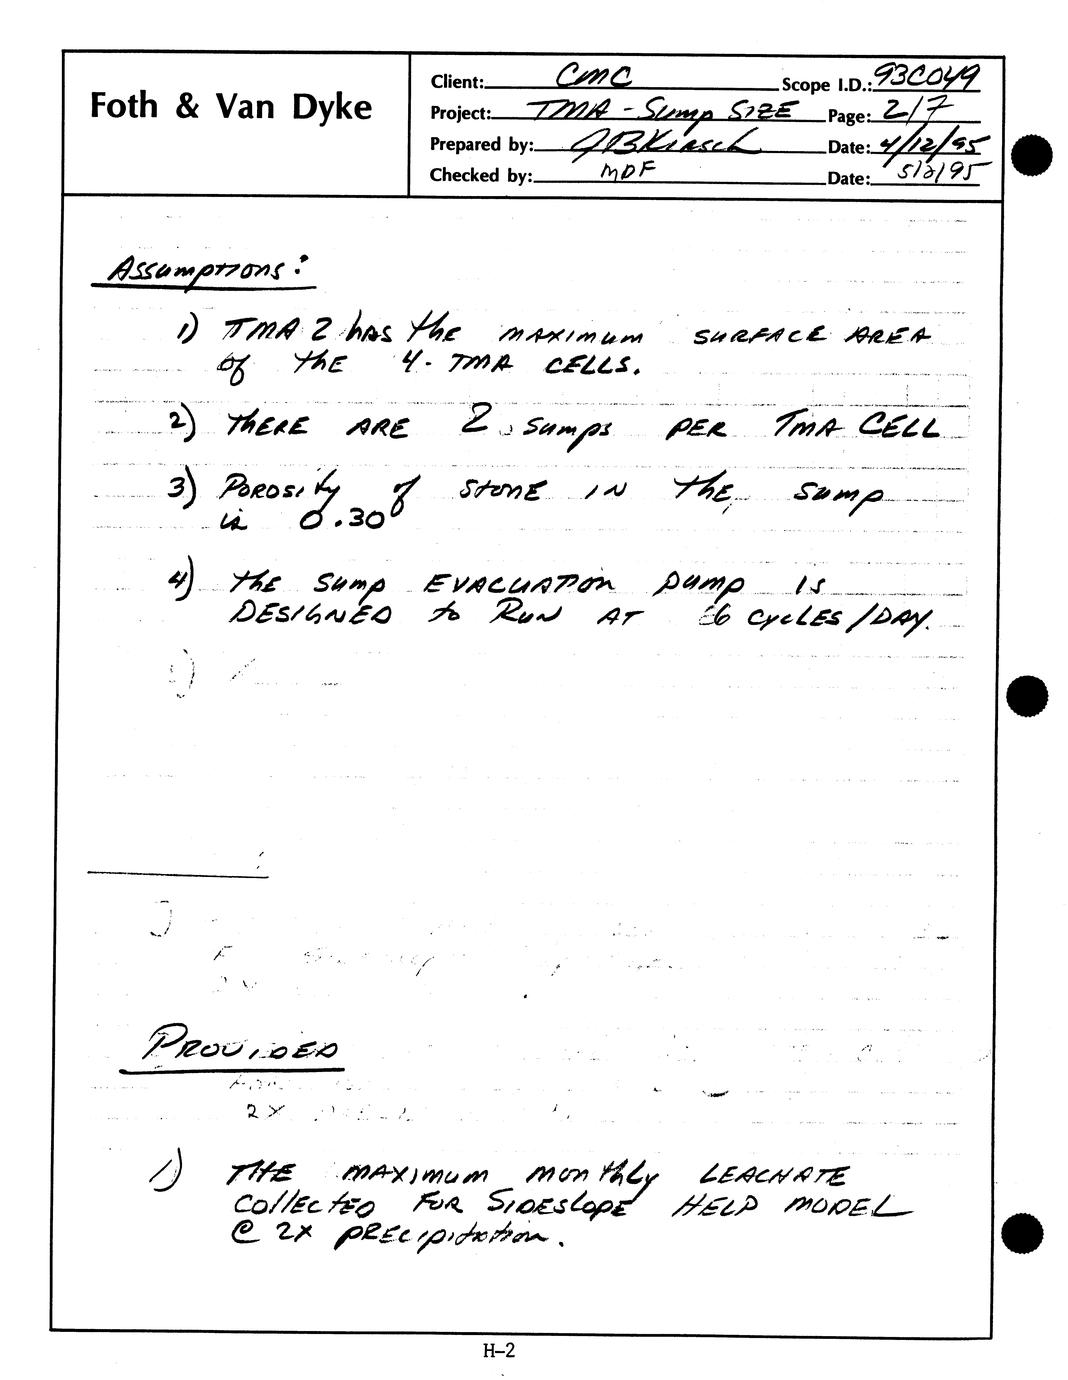 Foth & Van Dyke
Client: CMC Scope I.D.: 93C049
Project: TMA - Sump SIZE Page: 2/7
Prepared by: JBKirsch Date: 4/12/95
Checked by: MDF Date: 5/2/95
Assumptions:
1) TMA 2 has the MAXIMUM SURFACE AREA
of the 4 - TMA CELLS.
2) THERE ARE 2 Sumps PER TMA CELL
3) Porosity of STONE IN the sump
is 0.30
4) the Sump EVACUATION pump IS
DESIGNED to RUN AT 6 CYCLES/DAY.
PROVIDED
2X
1) THE MAXIMUM monthly LEACHATE
COllECTED FOR SIDESlOPE HELP MODEL
@ 2X PRECipitation.
H-2